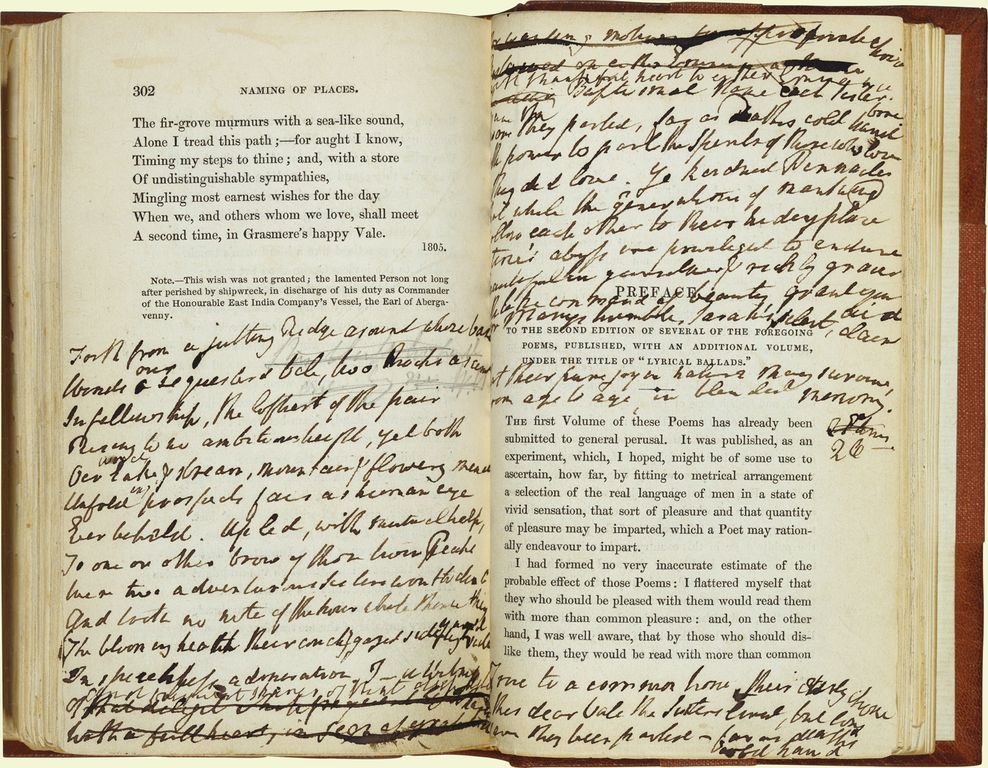 302 NAMING OF PLACES.
The fir-grove murmurs with a sea-like sound,
Alone I tread this path;—for aught I know,
Timing my steps to thine; and, with a store
Of undistinguishable sympathies,
Mingling most earnest wishes for the day
When we, and others whom we love, shall meet
A second time, in Grasmere's happy Vale.
1805.
Note.—This wish was not granted; the lamented Person not long
after perished by shipwreck, in discharge of his duty as Commander
of the Honourable East India Company's Vessel, the Earl of Aberga-
venny.
Forth from a jutting Ridge around whose base
Winds our sequestered Vale, two Rocks ascend
In fellowship, the loftiest of the pair
Rising to no ambitious height, yet both
Oer Lake & stream, mountain & flowery mead
Unfold prospects fair as human eye
Ever beheld. Up led, with mutual help,
To one or other brow of those twin Peaks
were two adventurous Sisters wont to climb
And took no note of the hour while thence they gazed
The blooming heath their couch, gazed side by side
In speechless admiration. I — a witness
with a full heart
thankful heart to either Eminence
Baptismal Name each Sister bore
they parted, far as Death's cold hand
power to part the Spirits of those who love
they did love. Ye kindred Pinnacles
while the generations of mankind
each other to their hiding place
time's abyss are privileged to endure
Beautiful in yourselves & richly graced
the command of beauty, grant
Mary's humble, Sarah's silent, claim
their pure joy in nature may survive
from age to age in blended memory.
26
PREFACE
TO THE SECOND EDITION OF SEVERAL OF THE FOREGOING
POEMS, PUBLISHED, WITH AN ADDITIONAL VOLUME,
UNDER THE TITLE OF "LYRICAL BALLADS."
THE first Volume of these Poems has already been
submitted to general perusal. It was published, as an
experiment, which, I hoped, might be of some use to
ascertain, how far, by fitting to metrical arrangement
a selection of the real language of men in a state of
vivid sensation, that sort of pleasure and that quantity
of pleasure may be imparted, which a Poet may ration-
ally endeavour to impart.
I had formed no very inaccurate estimate of the
probable effect of those Poems: I flattered myself that
they who should be pleased with them would read them
with more than common pleasure: and, on the other
hand, I was well aware, that by those who should dis-
like them, they would be read with more than common
to a common home their early choice
this dear Vale the Sisters lived, but long
they been parted — far as death's
cold hand